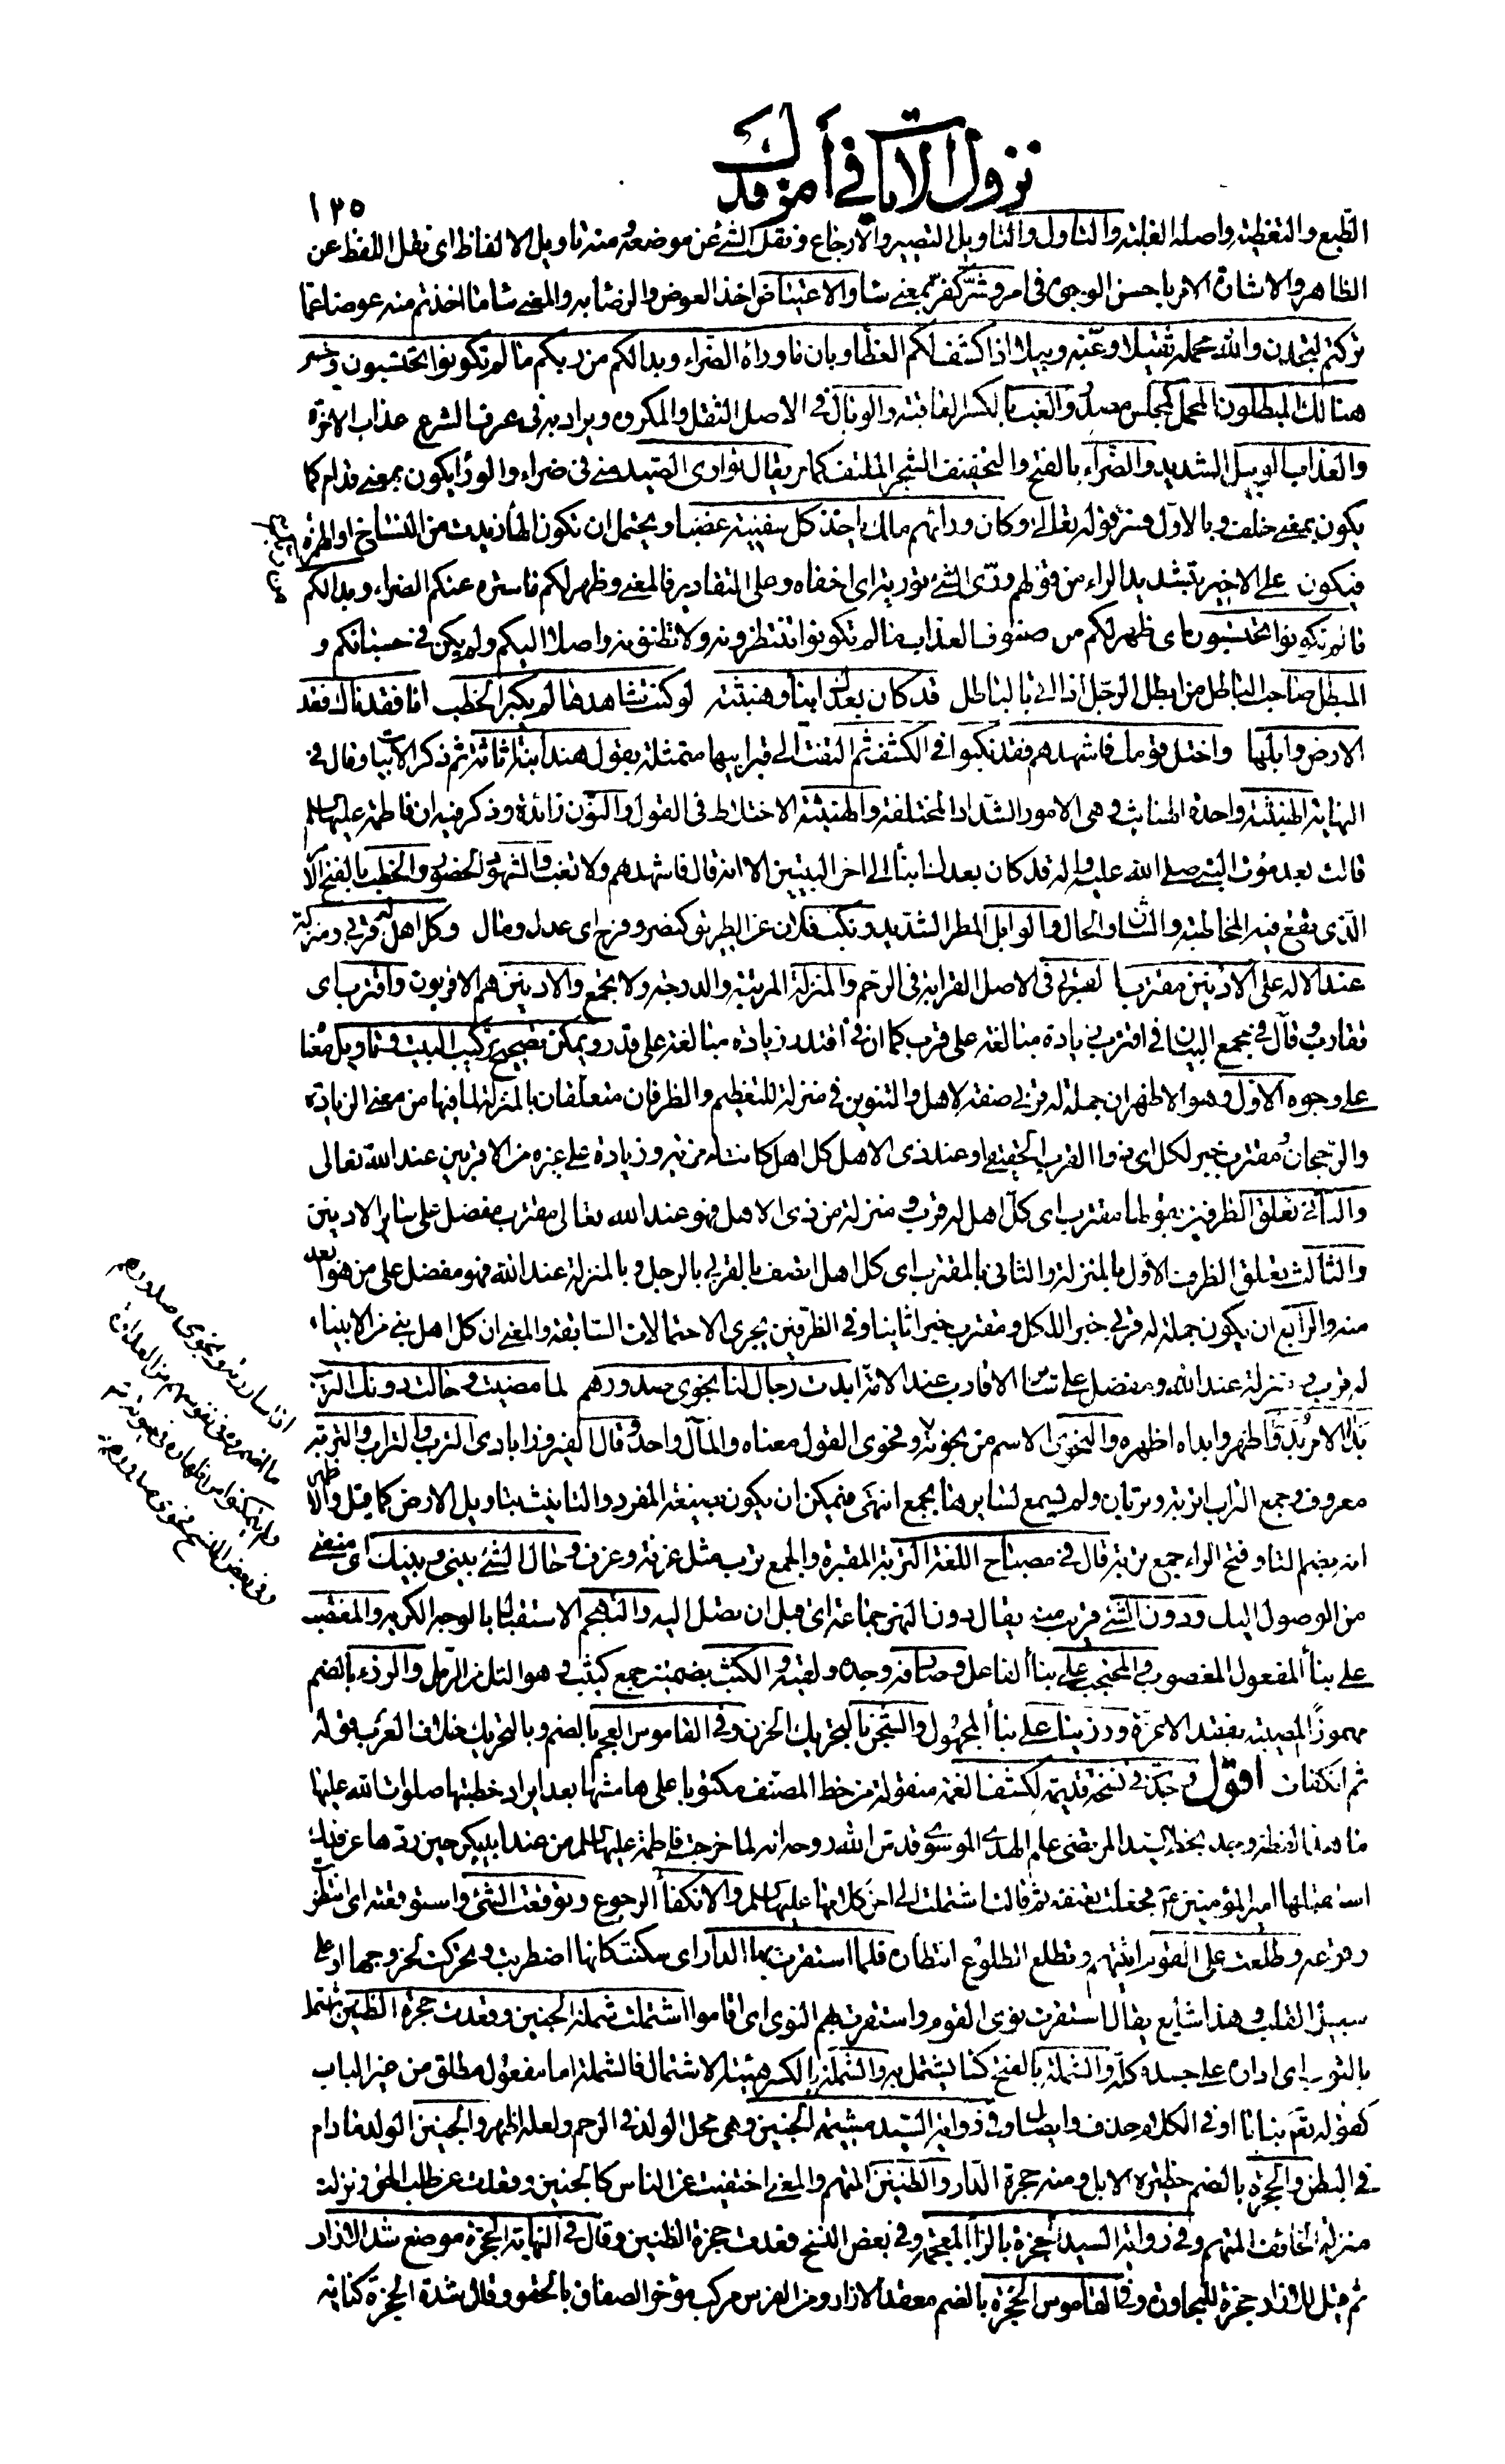 نزول الآيات في أمر فدك
١٣٥
الطبع والتغطية واصله الغلبة والتاول والتاويل التصيير والارجاع ونقل الشئ عن موضعه ومنه تاويل الالفاظ اى نقل اللفظ عن
الظاهر والاشارة الامر باحسن الوجوه فى امر وشر كفر بمعنى ساء والاعتياض اخذ العوض والرضا به والمعنى ساء ما اخذتم منه عوضا عما
تركتم لتجدن والله محمله ثقيلا وغبه وبيلا اذا كشف لكم الغطاء وبان ما وراءه الضراء وبدا لكم من ربكم ما لم تكونوا تحتسبون وخسر
هنالك المبطلون المحمل كمجلس مصدر والغب بالكسر العاقبة والوبال فى الاصل الثقل والمكروه ويراد به فى عرف الشرع عذاب الاخرة
والعذاب الوبيل الشديد والضراء بالفتح والتخفيف الشجر الملتف كما مر يقال توارى الصيد منى فى ضراء والوراء يكون بمعنى قدام كما
يكون بمعنى خلف وبالاول فسر قوله تعالى وكان ورائهم ملك ياخذ كل سفينة غصبا ويحتمل ان تكون الهاء زيدت من النساخ او الهمزة
فيكون على الاخير بتشديد الراء من قولهم ورى الشئ تورية اى اخفاه وعلى التقادير فالمعنى وظهر لكم ما ستره عنكم الضراء وبدا لكم
ما لم تكونوا تحتسبون اى ظهر لكم من صنوف العذاب ما لم تكونوا تنتظرونه ولا تظنونه واصلا اليكم ولم يكن فى حسبانكم و
المبطل صاحب الباطل من ابطل الرجل اذا اتى بالباطل قد كان بعدك انباء وهنبثة لو كنت شاهدها لم يكبر الخطب انا فقدناك فقد
الارض وابلها واختل قومك فاشهدهم فقد نكبوا فى الكشف ثم التفتت الى قبر ابيها متمثلة بقول هند ابنة اثاثة ثم ذكر الابيات وقال فى
النهاية الهنبثة واحدة الهنابث وهى الامور الشداد المختلفة والهنبثة الاختلاط فى القول والنون زائدة وذكر فيه ان فاطمة عليها السلم
قالت بعد موت النبى صلى الله عليه واله قد كان بعدك انباء الى اخر البيتين الا انه قال فاشهدهم ولا تغب والشهود الحضور والخطب بالفتح الامر
الذى تقع فيه المخاطبة والشان والحال والوابل المطر الشديد ونكب فلان عن الطريق كنصر وفرح اى عدل ومال وكل اهل له قربى ومنزلة
عند الاله على الادنين مقترب القربى فى الاصل القرابة فى الرحم والمنزلة المرتبة والدرجة ولا تجمع والادنين هم الاقربون واقترب اى
تقارب وقال فى مجمع البيان فى اقترب زيادة مبالغة على قرب كما ان فى اقتدر زيادة مبالغة على قدر ويمكن تصحيح تركيب البيت وتاويل معناه
على وجوه الاول وهو الاظهر ان جملة له قربى صفة لاهل والتنوين فى منزلة للتعظيم والظرفان متعلقان بالمنزلة لما فيها من معنى الزيادة
والرجحان ومقترب خبر لكل اى ذو القرب الحقيقى او عند ذى الاهل كل اهل كانت له مزية وزيادة على غيره من الاقربين عند الله تعالى
والثانى تعلق الظرفين بقولها مقترب اى كل اهل له قرب ومنزلة من ذى الاهل فهو عند الله تعالى مقترب مفضل على سائر الادنين
والثالث تعلق الظرف الاول بالمنزلة والثانى بالمقترب اى كل اهل اتصف بالقربى بالرجل وبالمنزلة عند الله فهو مفضل على من هو ابعد
منه والرابع ان يكون جملة له قربى خبرا للكل ومقترب خبرا ثانيا وفى الظرفين يجرى الاحتمالات السابقة والمعنى ان كل اهل نبى من الانبياء
له قرب ومنزلة عند الله ومفضل على سائر الاقارب عند الامة ابدت رجال لنا نجوى صدورهم لما مضيت وحالت دونك الترب
بدا الامر بدوا ظهر وابداه اظهره والنجوى الاسم من نجوته ونجوى القول معناه والمال واحد وقال الفيروزابادى الترب والتراب والتربة
معروف وجمع التراب اتربة وتربان ولم يسمع لسائرها بجمع انتهى فيمكن ان يكون بصيغة المفرد والتانيث بتاويل الارض كما قيل والاظهر
انه بضم التاء وفتح الراء جمع تربة قال فى مصباح اللغة التربة المقبرة والجمع ترب مثل غرفة وغرف وحال الشئ بينى وبينك اى منعنى
من الوصول اليك ودون الشئ قريب منه يقال دون النهر جماعة اى قبل ان تصل اليه والتهجم الاستقبال بالوجه الكريه والمغتصب
على بناء المفعول المغصوب والمحتجب على بناء الفاعل وصادفه وجده ولقيه والكثب بضمتين جمع كثيب وهو التل من الرمل والرزء بالضم
مهموزا المصيبة بفقد الاعزة ورزينا على بناء المجهول والشجن بالتحريك الحزن وفى القاموس العجم بالضم وبالتحريك خلاف العرب قوله
ثم انكفات اقول وجدت فى نسخة قديمة لكشف الغمة منقولة من خط المصنف مكتوبا على هامشها بعد ايراد خطبتها صلوات الله عليها
ما هذا لفظه وجد بخط السيد المرتضى علم الهدى الموسوى قدس الله روحه انه لما خرجت فاطمة عليها السلم من عند ابى بكر حين ردها عن فدك
استقبلها امير المؤمنين ع فجعلت تعنفه ثم قالت اشتملت الى اخر كلامها عليها السلم والانكفاء الرجوع وتوقعت الشئ واستوقعته اى انتظرت
وقوعه وطلعت على القوم اتيتهم وتطلع الطلوع انتظاره فلما استقرت بها الدار اى سكنت كانها اضطربت وتحركت لخروجها او على
سبيل القلب وهذا شايع يقال استقرت نوى القوم واستقرت بهم النوى اى اقاموا اشتملت شملة الجنين وقعدت حجرة الظنين اشتمل
بالثوب اى اداره على جسده كله والشملة بالفتح كساء يشتمل به والشملة بالكسر هيئة الاشتمال فالشملة اما مفعول مطلق من غير الباب
كقوله تع نباتا او فى الكلام حذف وايصال وفى رواية السيد مشيمة الجنين وهى محل الولد فى الرحم ولعله اظهر والجنين الولد ما دام
فى البطن والحجرة بالضم حظيرة الابل ومنه حجرة الدار والظنين المتهم والمعنى اختفيت عن الناس كالجنين وقعدت عن طلب الحق ونزلت
منزلة الخائف المتهم وفى رواية السيد الحجزة بالزاء المعجمة وفى بعض النسخ قعدت حجزة الظنين وقال فى النهاية الحجزة موضع شد الازار
ثم قيل للازار حجزة للمجاورة وفى القاموس الحجزة بالضم معقد الازار ومن الفرس مركب مؤخر الصفاق بالحقو وقال شدة الحجزة كناية
اذا ساررته ونجوى صدورهم
ما اضمروه فى نفوسهم من العداوة
ولم يتمكنوا من اظهاره فى حيوته ص
وفى بعض النسخ فحوى صدورهم